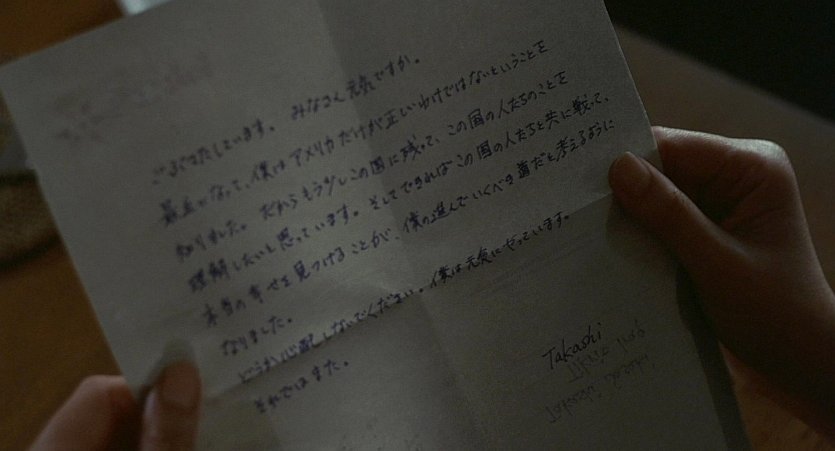 ごぶさたしています。 みなさん元気ですか。
最近になって、僕はアメリカだけが正しいわけではないということを
知りました。だからもう少しこの国に残って、この国の人たちのことを
理解したいと思っています。そしてできればこの国の人たちと共に戦って、
本当の幸せを見つけることが、僕の進んでいくべき道だと考えるように
なりました。
どうか心配しないでください。僕は元気にやっています。
それではまた。
Takashi